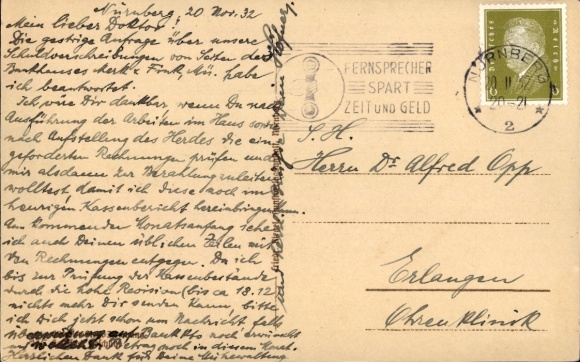 Nürnberg, 20 Nov. 32
Mein lieber Doktor!
Die gestrige Anfrage über unsere
Schuldverschreibungen von Seiten der
Bankhauses & Fink, Mü. habe
ich beantwortet.
Ich wäre Dir dankbar wenn Du nach
Ausführung der Arbeiten im Haus sowie
nach Aufstellung des Herdes die ein
geforderten Rechnungen prüfen und
mir alsdann zur Bezahlung zuleiten
wolltest damit ich diese noch im
heurigen Kassenbericht hereinbringen
Am kommenden Monatsanfang sehe
ich auch Deinen üblichen Zeilen mit
den Rechnungen entgegen. Da ich
bis zur Prüfung der Kassenbestände
durch die hohe Revision (bis ca 18.12
nichts mehr Dir senden kann, bitte
ich Dich jetzt schon um Nachricht falls
auf noch
Betrag noch in diesem
Herzlichen Dank für Deine Mühewaltung
Dein
FERNSPRECHER
SPART
ZEIT UND GELD
NÜRNBERG
20-21
2
S. H.
Herrn Dr Alfred Opp
Erlangen
Ohrenklinik